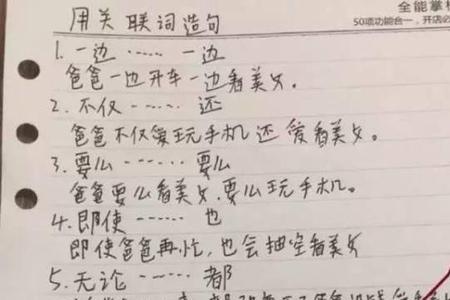 全能掌柜
50项功能合一，开店必
用关联词造句
1. 一边 …… 一边
爸爸一边开车一边看美女。
2. 不仅 …… 还
爸爸不仅爱玩手机还爱看美女。
3. 要么 …… 要么
爸爸要么看美女，要么玩手机。
4. 即使 …… 也
即使爸爸再忙，也会抽空看美女
5. 无论 …… 都